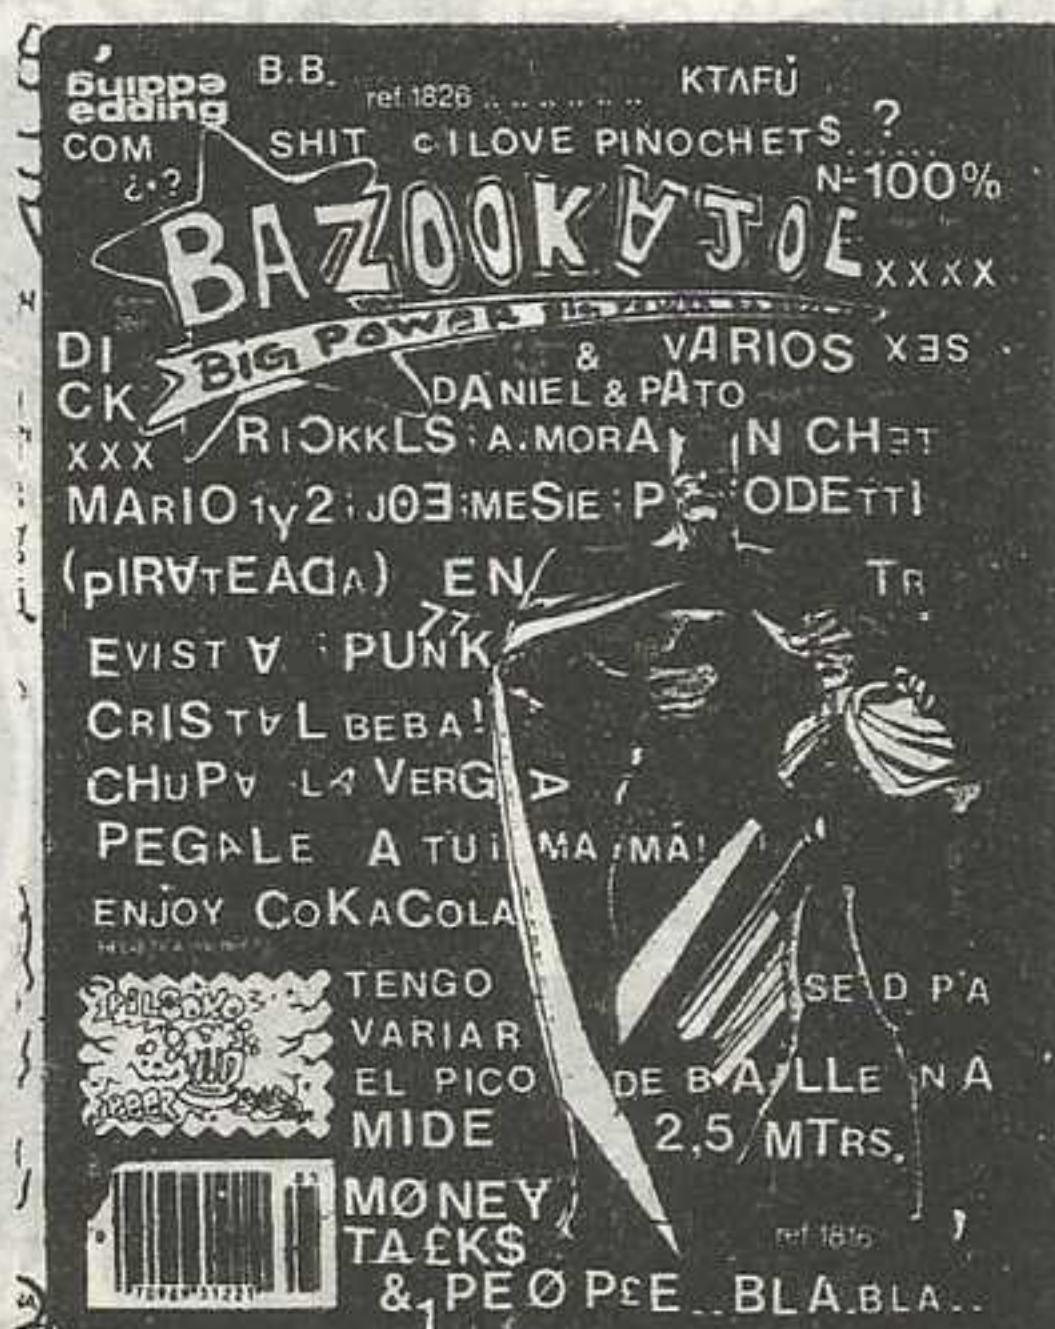 edding
edding
B.B.
ref. 1826
KTAFÚ
COM
SHIT
¢ I LOVE PINOCHET $ ?
¿•?
Nº 100%
BAZOOKAJOE
XXXX
BIG POWER
DI
CK
XXX
& VARIOS XƎS
DANIEL & PATO
RIƆKKLS : A. MORA N CHƎT
MARIO 1y2 : JOƎ : MESIE : P ODETTI
(pIRATEADA) EN TR
EVISTA : PUNK 77
CRISTAL BEBA!
CHUPA LA VERG A
PEGALE A TU MA MÁ!
ENJOY COKACOLA
PILCOKO
TENGO SE D P'A
VARIAR
EL PICO DE BA LLE NA
MIDE 2,5 MTRS.
MØNEY
TA£K$
ref. 1816
& PEØP£E .. BLA.BLA..